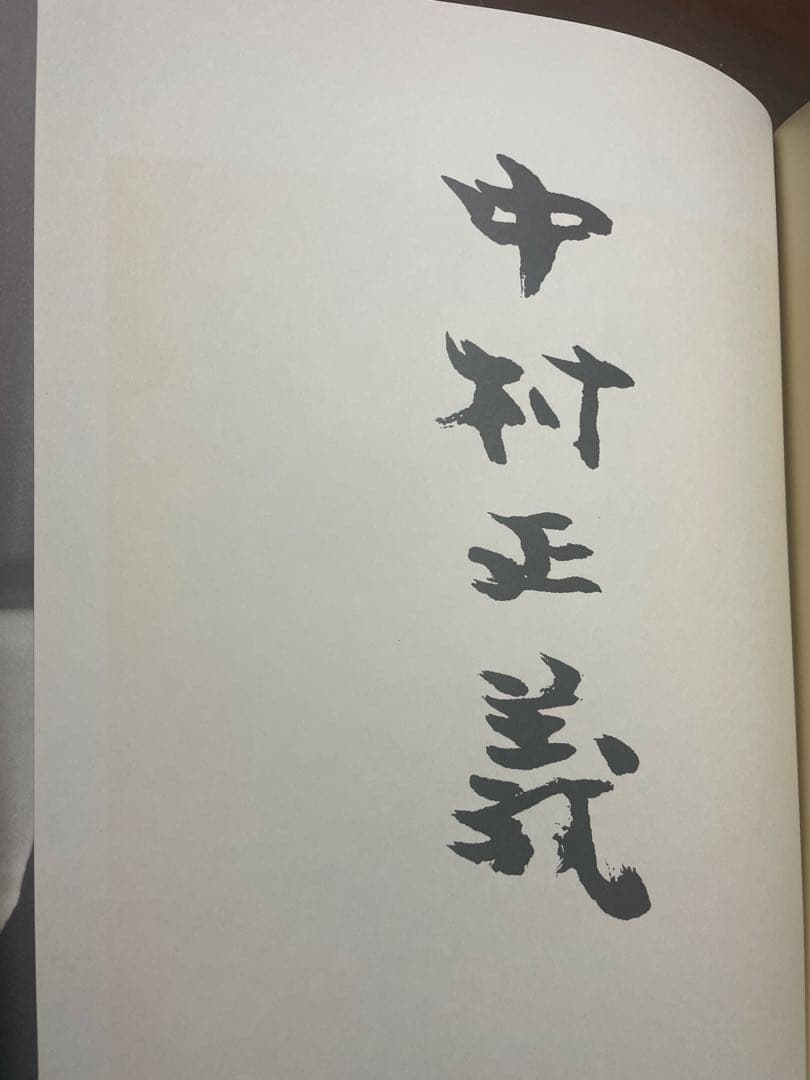 中村正義